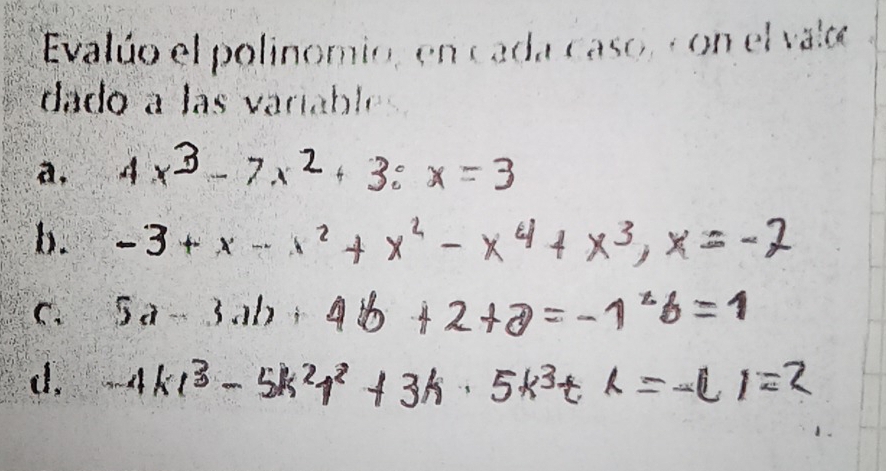 Evalúo el polinomio, en cada caso, con el valor
dado a las variables.
a. 4x³ - 7x² + 3: x = 3
b. -3 + x - x² + x² - x⁴ + x³, x = -2
c. 5a - 3ab + 4b + 2 + a = -1 b = 1
d. -4kl³ - 5k² + 3k 5k³ = 2